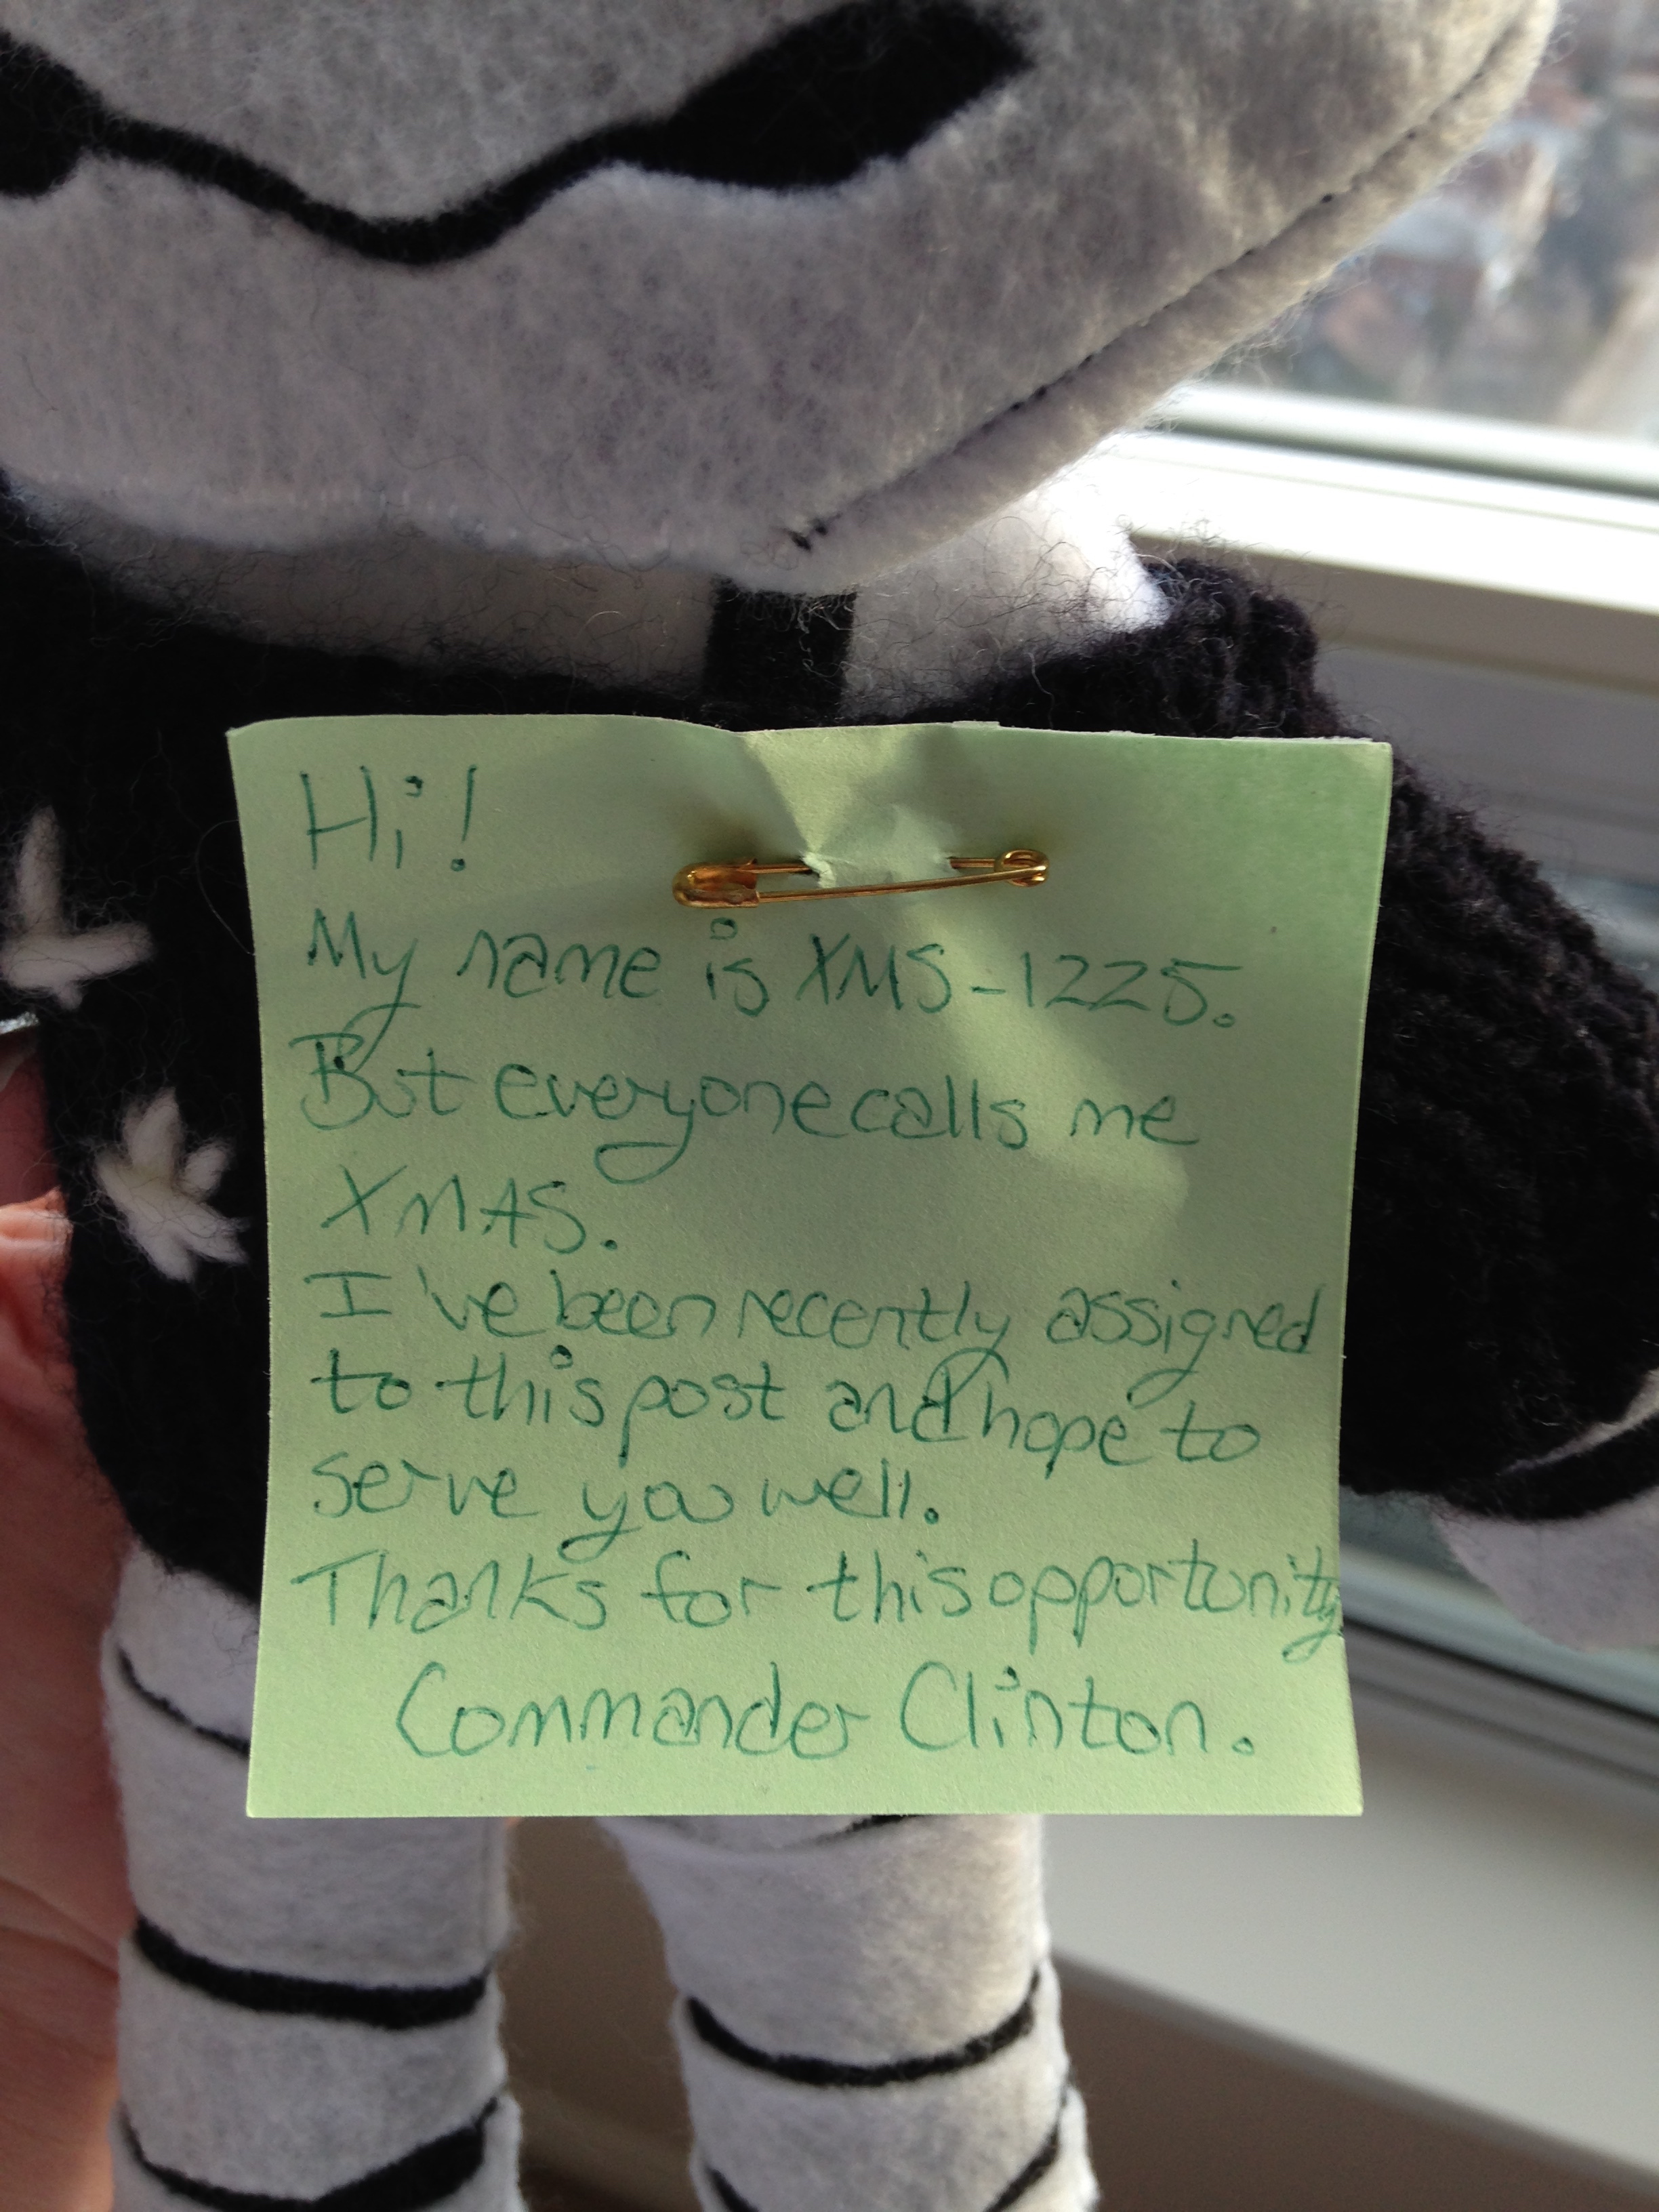 Hi!
My name is XMS-1225.
But everyone calls me
XMAS.
I've been recently assigned
to this post and hope to
serve you well.
Thanks for this opportunity
Commander Clinton.